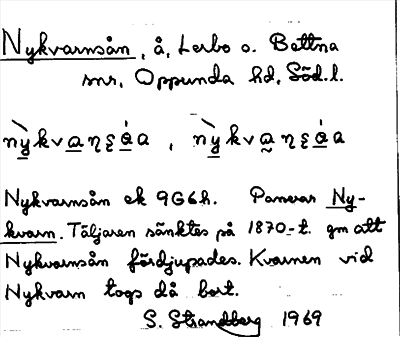 Nykvarnsån, å, Lerbo o. Bettna
snr, Oppunda hd, Söd. l.
Nykvarnsån ek 9G6h. Passerar Ny-
kvarn. Tåljaren sänktes på 1870-t. gm att
Nykvarnsån fördjupades. Kvarnen vid
Nykvarn togs då bort.
S. Strandberg 1969